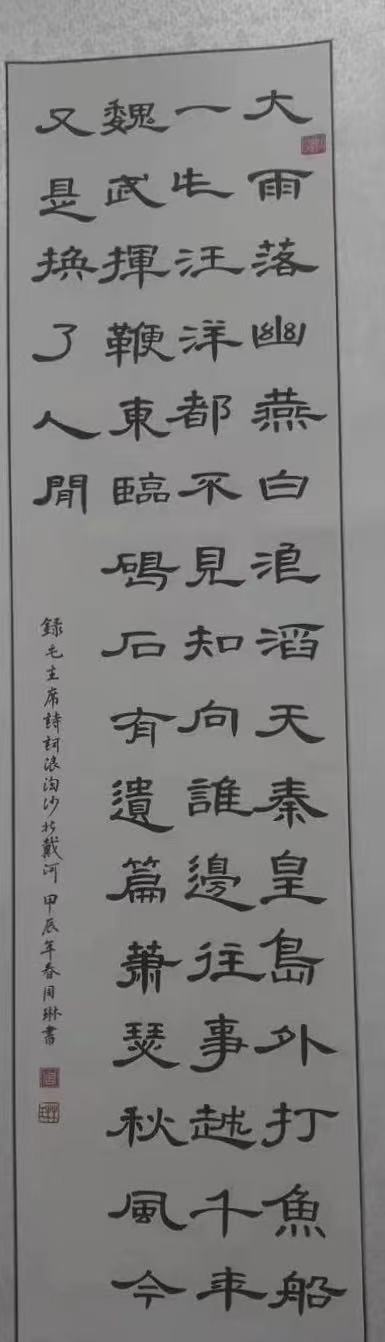 大雨落幽燕白浪滔天秦皇島外打魚船
一片汪洋都不見知向誰邊往事越千年
魏武揮鞭東臨碣石有遺篇蕭瑟秋風今
又是換了人間
錄毛主席詩詞浪淘沙北戴河 甲辰年春周琳書